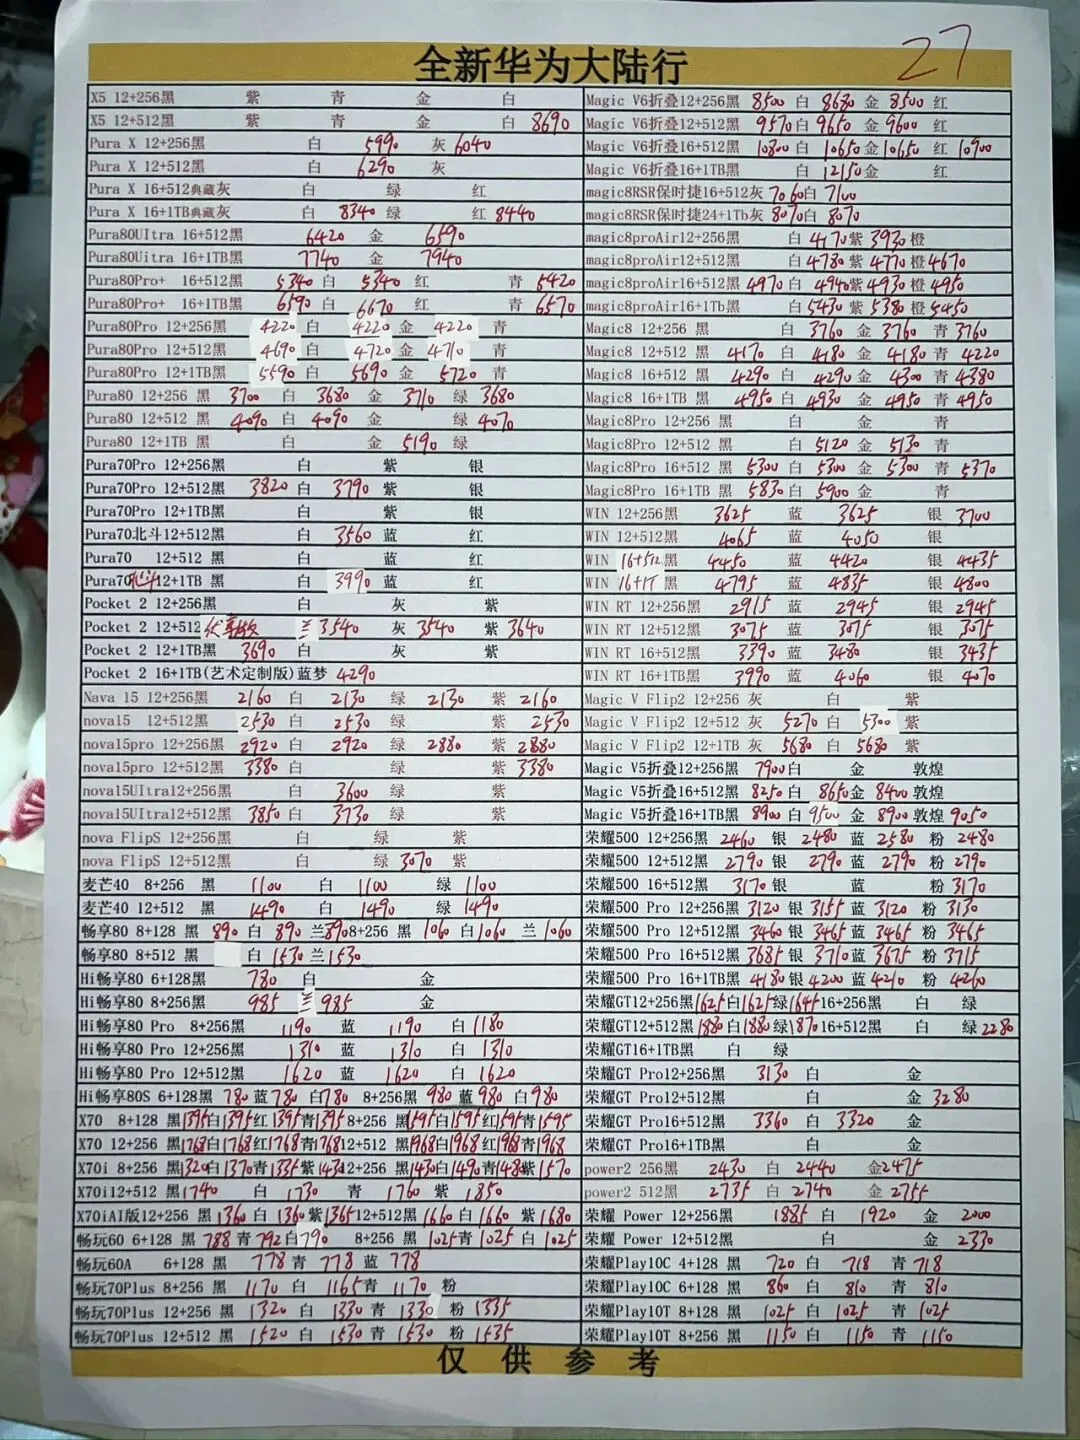 全新华为大陆行
27
X5 12+256黑 紫 青 金 白
X5 12+512黑 紫 青 金 白 8690
Pura X 12+256黑 白 5990 灰 6040
Pura X 12+512黑 白 6290 灰
Pura X 16+512典藏灰 白 绿 红
Pura X 16+1TB典藏灰 白 8340 绿 红 8440
Pura80UItra 16+512黑 6420 金 6590
Pura80Uitra 16+1TB黑 7740 金 7940
Pura80Pro+ 16+512黑 5340 白 5340 红 青 5420
Pura80Pro+ 16+1TB黑 6590 白 6670 红 青 6570
Pura80Pro 12+256黑 4220 白 4220 金 4220 青
Pura80Pro 12+512黑 4690 白 4720 金 4710 青
Pura80Pro 12+1TB黑 5590 白 5690 金 5720 青
Pura80 12+256 黑 3700 白 3680 金 3710 绿 3680
Pura80 12+512 黑 4090 白 4090 金 绿 4070
Pura80 12+1TB 黑 白 金 5190 绿
Pura70Pro 12+256黑 白 紫 银
Pura70Pro 12+512黑 3820 白 3790 紫 银
Pura70Pro 12+1TB黑 白 紫 银
Pura70北斗12+512黑 白 3560 蓝 红
Pura70 12+512 黑 白 蓝 红
Pura70北斗12+1TB 黑 白 3990 蓝 红
Pocket 2 12+256黑 白 灰 紫
Pocket 2 12+512 3540 灰 3540 紫 3640
Pocket 2 12+1TB黑 3690 白 灰 紫
Pocket 2 16+1TB(艺术定制版)蓝梦 4290
Nava 15 12+256黑 2160 白 2130 绿 2130 紫 2160
nova15 12+512黑 2530 白 2530 绿 紫 2530
nova15pro 12+256黑 2920 白 2920 绿 2880 紫 2880
nova15pro 12+512黑 3380 白 绿 紫 3380
nova15UItra12+256黑 白 3600 绿 紫
nova15UItra12+512黑 3850 白 3730 绿 紫
nova FlipS 12+256黑 白 绿 紫
nova FlipS 12+512黑 白 绿 3070 紫
麦芒40 8+256 黑 1100 白 1100 绿 1100
麦芒40 12+512 黑 1490 白 1490 绿 1490
畅享80 8+128 黑 890 白 890 兰 890 8+256 黑 1060 白 1060 兰 1060
畅享80 8+512 黑 白 1530 兰 1530
Hi畅享80 6+128黑 780 白 金
Hi畅享80 8+256黑 985 兰 985 金
Hi畅享80 Pro 8+256黑 1190 蓝 1190 白 1180
Hi畅享80 Pro 12+256黑 1310 蓝 1310 白 1310
Hi畅享80 Pro 12+512黑 1620 蓝 1620 白 1620
Hi畅享80S 6+128黑 780 蓝 780 白 780 8+256黑 980 蓝 980 白 980
X70 8+128 黑 1395 白 1395 红 1395 青 1395 8+256 黑 1595 白 1595 红 1595 青 1595
X70 12+256 黑 1768 白 1768 红 1768 青 1768 12+512 黑 1968 白 1968 红 1968 青 1968
X70i 8+256 黑 1320 白 1370 青 1335 紫 1430 12+256 黑 1430 白 1490 青 1480 紫 1570
X70i12+512 黑 1740 白 1730 青 1760 紫 1850
X70iAI版12+256 黑 1360 白 1360 紫 1365 12+512黑 1660 白 1660 紫 1680
畅玩60 6+128 黑 788 青 792 白 790 8+256 黑 1025 青 1025 白 1025
畅玩60A 6+128 黑 778 青 778 蓝 778
畅玩70Plus 8+256 黑 1170 白 1165 青 1170 粉
畅玩70Plus 12+256 黑 1320 白 1330 青 1330 粉 1335
畅玩70Plus 12+512 黑 1520 白 1530 青 1530 粉 1535
Magic V6折叠12+256黑 8500 白 8680 金 8500 红
Magic V6折叠12+512黑 9570 白 9650 金 9600 红
Magic V6折叠16+512黑 10800 白 10650 金 10650 红 10900
Magic V6折叠16+1TB黑 白 12150 金 红
magic8RSR保时捷16+512灰 7060 白 7100
magic8RSR保时捷24+1Tb灰 8070 白 8070
magic8proAir12+256黑 白 4170 紫 3930 橙
magic8proAir12+512黑 白 4780 紫 4770 橙 4670
magic8proAir16+512黑 4970 白 4940 紫 4930 橙 4950
magic8proAir16+1Tb黑 白 5430 紫 5380 橙 5450
Magic8 12+256 黑 白 3760 金 3760 青 3760
Magic8 12+512 黑 4170 白 4180 金 4180 青 4220
Magic8 16+512 黑 4290 白 4290 金 4300 青 4380
Magic8 16+1TB 黑 4950 白 4930 金 4950 青 4950
Magic8Pro 12+256 黑 白 金 青
Magic8Pro 12+512 黑 白 5120 金 5130 青
Magic8Pro 16+512 黑 5300 白 5300 金 5300 青 5370
Magic8Pro 16+1TB 黑 5830 白 5900 金 青
WIN 12+256黑 3625 蓝 3625 银 3700
WIN 12+512黑 4065 蓝 4050 银
WIN 16+512 黑 4450 蓝 4420 银 4435
WIN 16+1T 黑 4795 蓝 4835 银 4800
WIN RT 12+256黑 2915 蓝 2945 银 2945
WIN RT 12+512黑 3075 蓝 3075 银 3075
WIN RT 16+512黑 3390 蓝 3480 银 3435
WIN RT 16+1TB黑 3990 蓝 4060 银 4070
Magic V Flip2 12+256 灰 白 紫
Magic V Flip2 12+512 灰 5270 白 5300 紫
Magic V Flip2 12+1TB 灰 5680 白 5680 紫
Magic V5折叠12+256黑 7900 白 金 敦煌
Magic V5折叠16+512黑 8250 白 8650 金 8400 敦煌
Magic V5折叠16+1TB黑 8900 白 9500 金 8900 敦煌 9050
荣耀500 12+256黑 2460 银 2480 蓝 2580 粉 2480
荣耀500 12+512黑 2790 银 2790 蓝 2790 粉 2790
荣耀500 16+512黑 3170 银 蓝 粉 3170
荣耀500 Pro 12+256黑 3120 银 3155 蓝 3120 粉 3130
荣耀500 Pro 12+512黑 3460 银 3465 蓝 3465 粉 3465
荣耀500 Pro 16+512黑 3685 银 3710 蓝 3675 粉 3715
荣耀500 Pro 16+1TB黑 4180 银 4200 蓝 4210 粉 4260
荣耀GT12+256黑 1625 白 1625 绿 1645 16+256黑 白 绿
荣耀GT12+512黑 1880 白 1880 绿 1870 16+512黑 白 绿 2280
荣耀GT16+1TB黑 白 绿
荣耀GT Pro12+256黑 3130 白 金
荣耀GT Pro12+512黑 白 金 3280
荣耀GT Pro16+512黑 3360 白 3320 金
荣耀GT Pro16+1TB黑 白 金
power2 256黑 2430 白 2440 金 2475
power2 512黑 2735 白 2740 金 2755
荣耀 Power 12+256黑 1885 白 1920 金 2000
荣耀 Power 12+512黑 白 金 2330
荣耀Play10C 4+128 黑 720 白 718 青 718
荣耀Play10C 6+128 黑 860 白 810 青 810
荣耀Play10T 8+128 黑 1025 白 1025 青 1025
荣耀Play10T 8+256 黑 1150 白 1150 青 1150
仅供参考